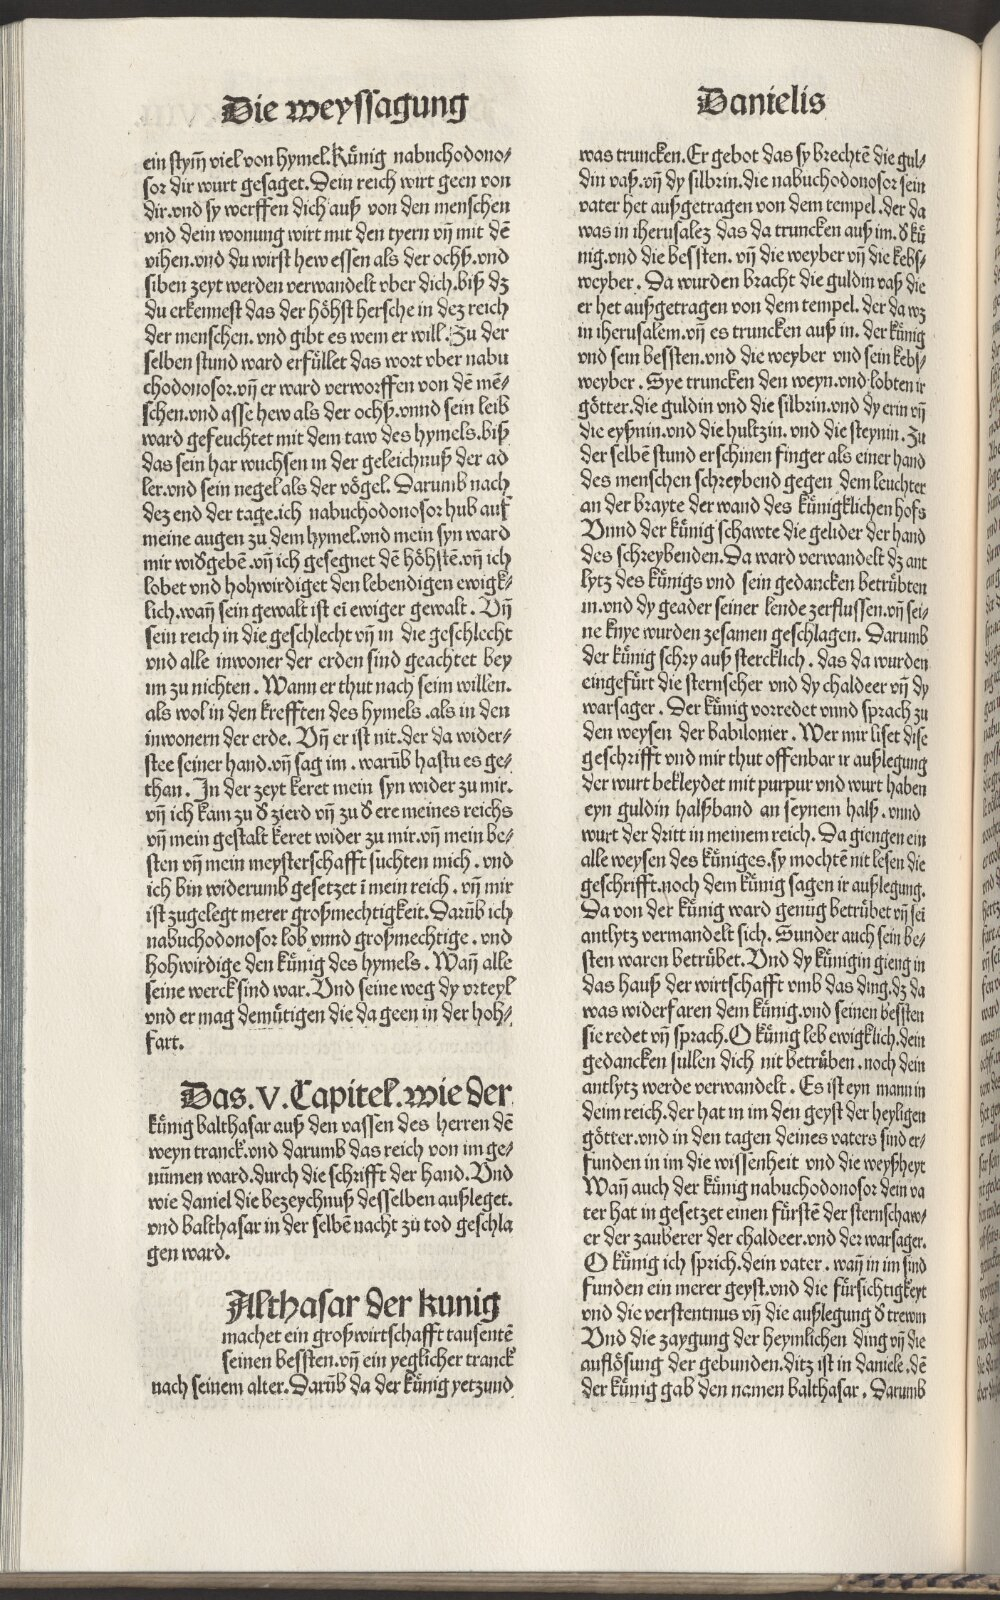 Die weyssagung
Danielis
ein stym̄ viel von hymel. Kǔnig nabuchodono⸗
sor dir wurt gesaget. Dein reich wirt geen von
dir. vnd sy werffen dich auß von den menschen
vnd dein wonung wirt mit den tyern vn̄ mit dē
vihen. vnd du wirst hew essen als der ochß. vnd
siben zeyt werden verwandelt vber dich. biß dz
du erkennest das der höhst hersche in dez reich
der menschen. vnd gibt es wem er will. Zu der
selben stund ward erfüllet das wort vber nabu
chodonosor. vn̄ er ward verworffen von dē mē⸗
schen. vnd asse hew als der ochß. vnnd sein leib
ward gefeuchtet mit dem taw des hymels. biß
das sein har wuchsen in der geleichnuß der ad
ler. vnd sein negel als der vögel. Darumb nach
dez end der tage. ich nabuchodonosor hub auf
meine augen zu dem hymel. vnd mein syn ward
mir widgebē. vn̄ ich gesegnet dē höhstē. vn̄ ich
lobet vnd hohwirdiget den lebendigen ewigk⸗
lich. wan̄ sein gewalt ist eī ewiger gewalt. Vn̄
sein reich in die geschlecht vn̄ in die geschlecht
vnd alle inwoner der erden sind geachtet bey
im zu nichten. Wann er thut nach seim willen.
als wol in den krefften des hymels. als in den
inwonern der erde. Vn̄ er ist nit. der da wider⸗
stee seiner hand. vn̄ sag im. warūb hastu es ge⸗
than. In der zeyt keret mein syn wider zu mir.
vn̄ ich kam zu d̄ zierd vn̄ zu d̄ ere meines reichs
vn̄ mein gestalt keret wider zu mir. vn̄ mein be⸗
sten vn̄ mein meysterschafft suchten mich. vnd
ich bin widerumb gesetzet ī mein reich. vn̄ mir
ist zugelegt merer großmechtigkeit. Darūb ich
nabuchodonosor lob vnnd großmechtige. vnd
hohwirdige den kǔnig des hymels. Wan̄ alle
seine werck sind war. Vnd seine weg dy vrteyl
vnd er mag demǔtigen die da geen in der hoh⸗
fart.
Das. V. Capitel. wie der
kǔnig balthasar auß den vassen des herren dē
weyn tranck. vnd darumb das reich von im ge⸗
nūmen ward. durch die schrifft der hand. Vnd
wie daniel die bezeychnuß desselben außleget.
vnd balthasar in der selbē nacht zu tod geschla
gen ward.
Althasar der kunig
machet ein groß wirtschafft tausentē
seinen bessten. vn̄ ein yeglicher tranck
nach seinem alter. Darūb da der kǔnig yetzund
was truncken. Er gebot das sy brechtē die gul⸗
din vaß. vn̄ dy silbrin. die nabuchodonosor sein
vater het außgetragen von dem tempel. der da
was in iherusalez das da truncken auß im. d̄ kǔ
nig. vnd die bessten. vn̄ die weyber vn̄ die kebs⸗
weyber. Da wurden bracht die guldin vaß die
er het außgetragen von dem tempel. der da wz
in iherusalem. vn̄ es truncken auß in. der kǔnig
vnd sein bessten. vnd die weyber vnd sein kebs⸗
weyber. Sye truncken den weyn. vnd lobten ir
götter. die guldin vnd die silbrin. vnd dy erin vn̄
die eyßnin. vnd die hultzin. vnd die steynin. Zu
der selbē stund erschinen finger als einer hand
des menschen schreybend gegen dem leuchter
an der brayte der wand des kǔnigklichen hofs
Vnnd der kǔnig schawte die gelider der hand
des schreybenden. Da ward verwandelt dz ant
lytz des kǔnigs vnd sein gedancken betrǔbten
in. vnd dy geader seiner lende zerflussen. vn̄ sei⸗
ne knye wurden zesamen geschlagen. Darumb
der kǔnig schry auß stercklich. das da wurden
eingefürt die sternseher vnd dy chaldeer vn̄ dy
warsager. Der kǔnig vorredet vnnd sprach zu
den weysen der babilonier. Wer mir liset dise
geschrifft vnd mir thut offenbar ir außlegung
der wurt bekleydet mit purpur vnd wurt haben
eyn guldin halßband an seynem halß. vnnd
wurt der dritt in meinem reich. Da giengen ein
alle weysen des kǔniges. sy mochtē nit lesen die
geschrifft. noch dem kǔnig sagen ir außlegung.
Da von der kǔnig ward genug betrǔbet vn̄ sei
antlytz vermandelt sich. Sunder auch sein be⸗
sten waren betrǔbet. Vnd dy kǔnigin gieng in
das hauß der wirtschafft vmb das ding. dz da
was widerfaren dem kǔnig. vnd seinen bessten
sie redet vn̄ sprach. O kǔnig leb ewigklich. dein
gedancken sullen dich nit betrǔben. noch dein
antlytz werde verwandelt. Es ist eyn man in
deim reich. der hat in im den geyst der heyligen
götter. vnd in den tagen deines vaters sind er⸗
funden in im die wissenheit vnd die weyßheyt
Wan̄ auch der kǔnig nabuchodonosor dein va
ter hat in gesetzet einen fürstē der sternschaw⸗
er der zauberer der chaldeer. vnd der warsager.
O kǔnig ich sprich. dein vater. wan̄ in im sind
funden ein merer geyst. vnd die fürsichtigkeyt
vnd die verstentnus vn̄ die außlegung d̄ trewm
Vnd die zaygung der heymlichen ding vn̄ die
auflösung der gebunden. ditz ist in daniele. dē
der kǔnig gab den namen balthasar. Darumb